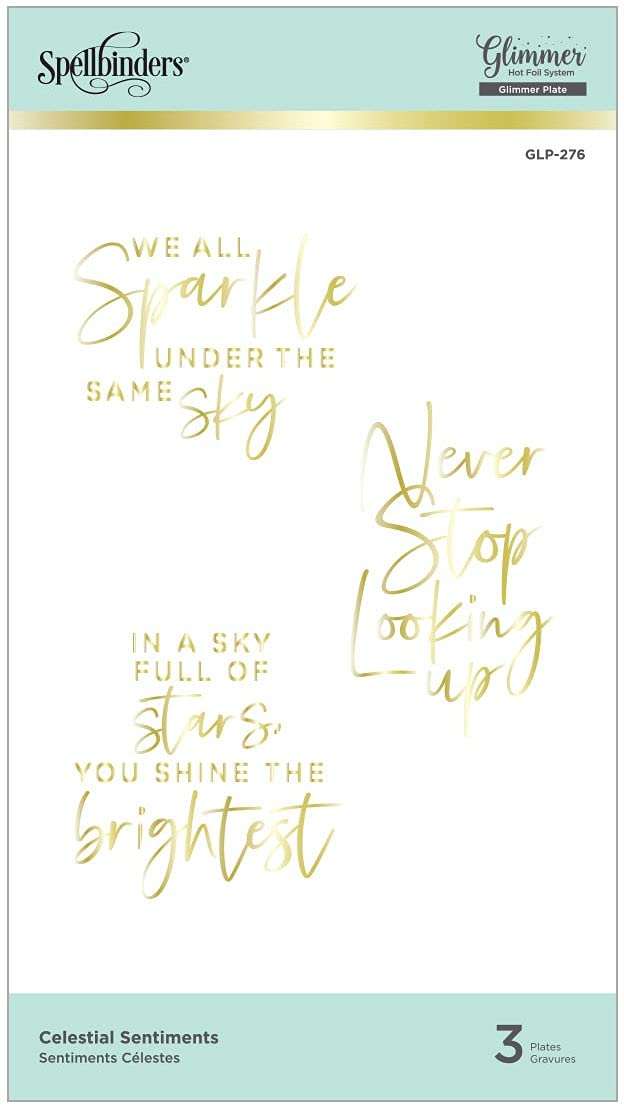 Spellbinders®
Glimmer
Hot Foil System
Glimmer Plate
GLP-276
WE ALL
Sparkle
UNDER THE
SAME sky
Never
Stop
Looking
up
IN A SKY
FULL OF
stars,
YOU SHINE THE
brightest
Celestial Sentiments
Sentiments Célestes
3 Plates
Gravures